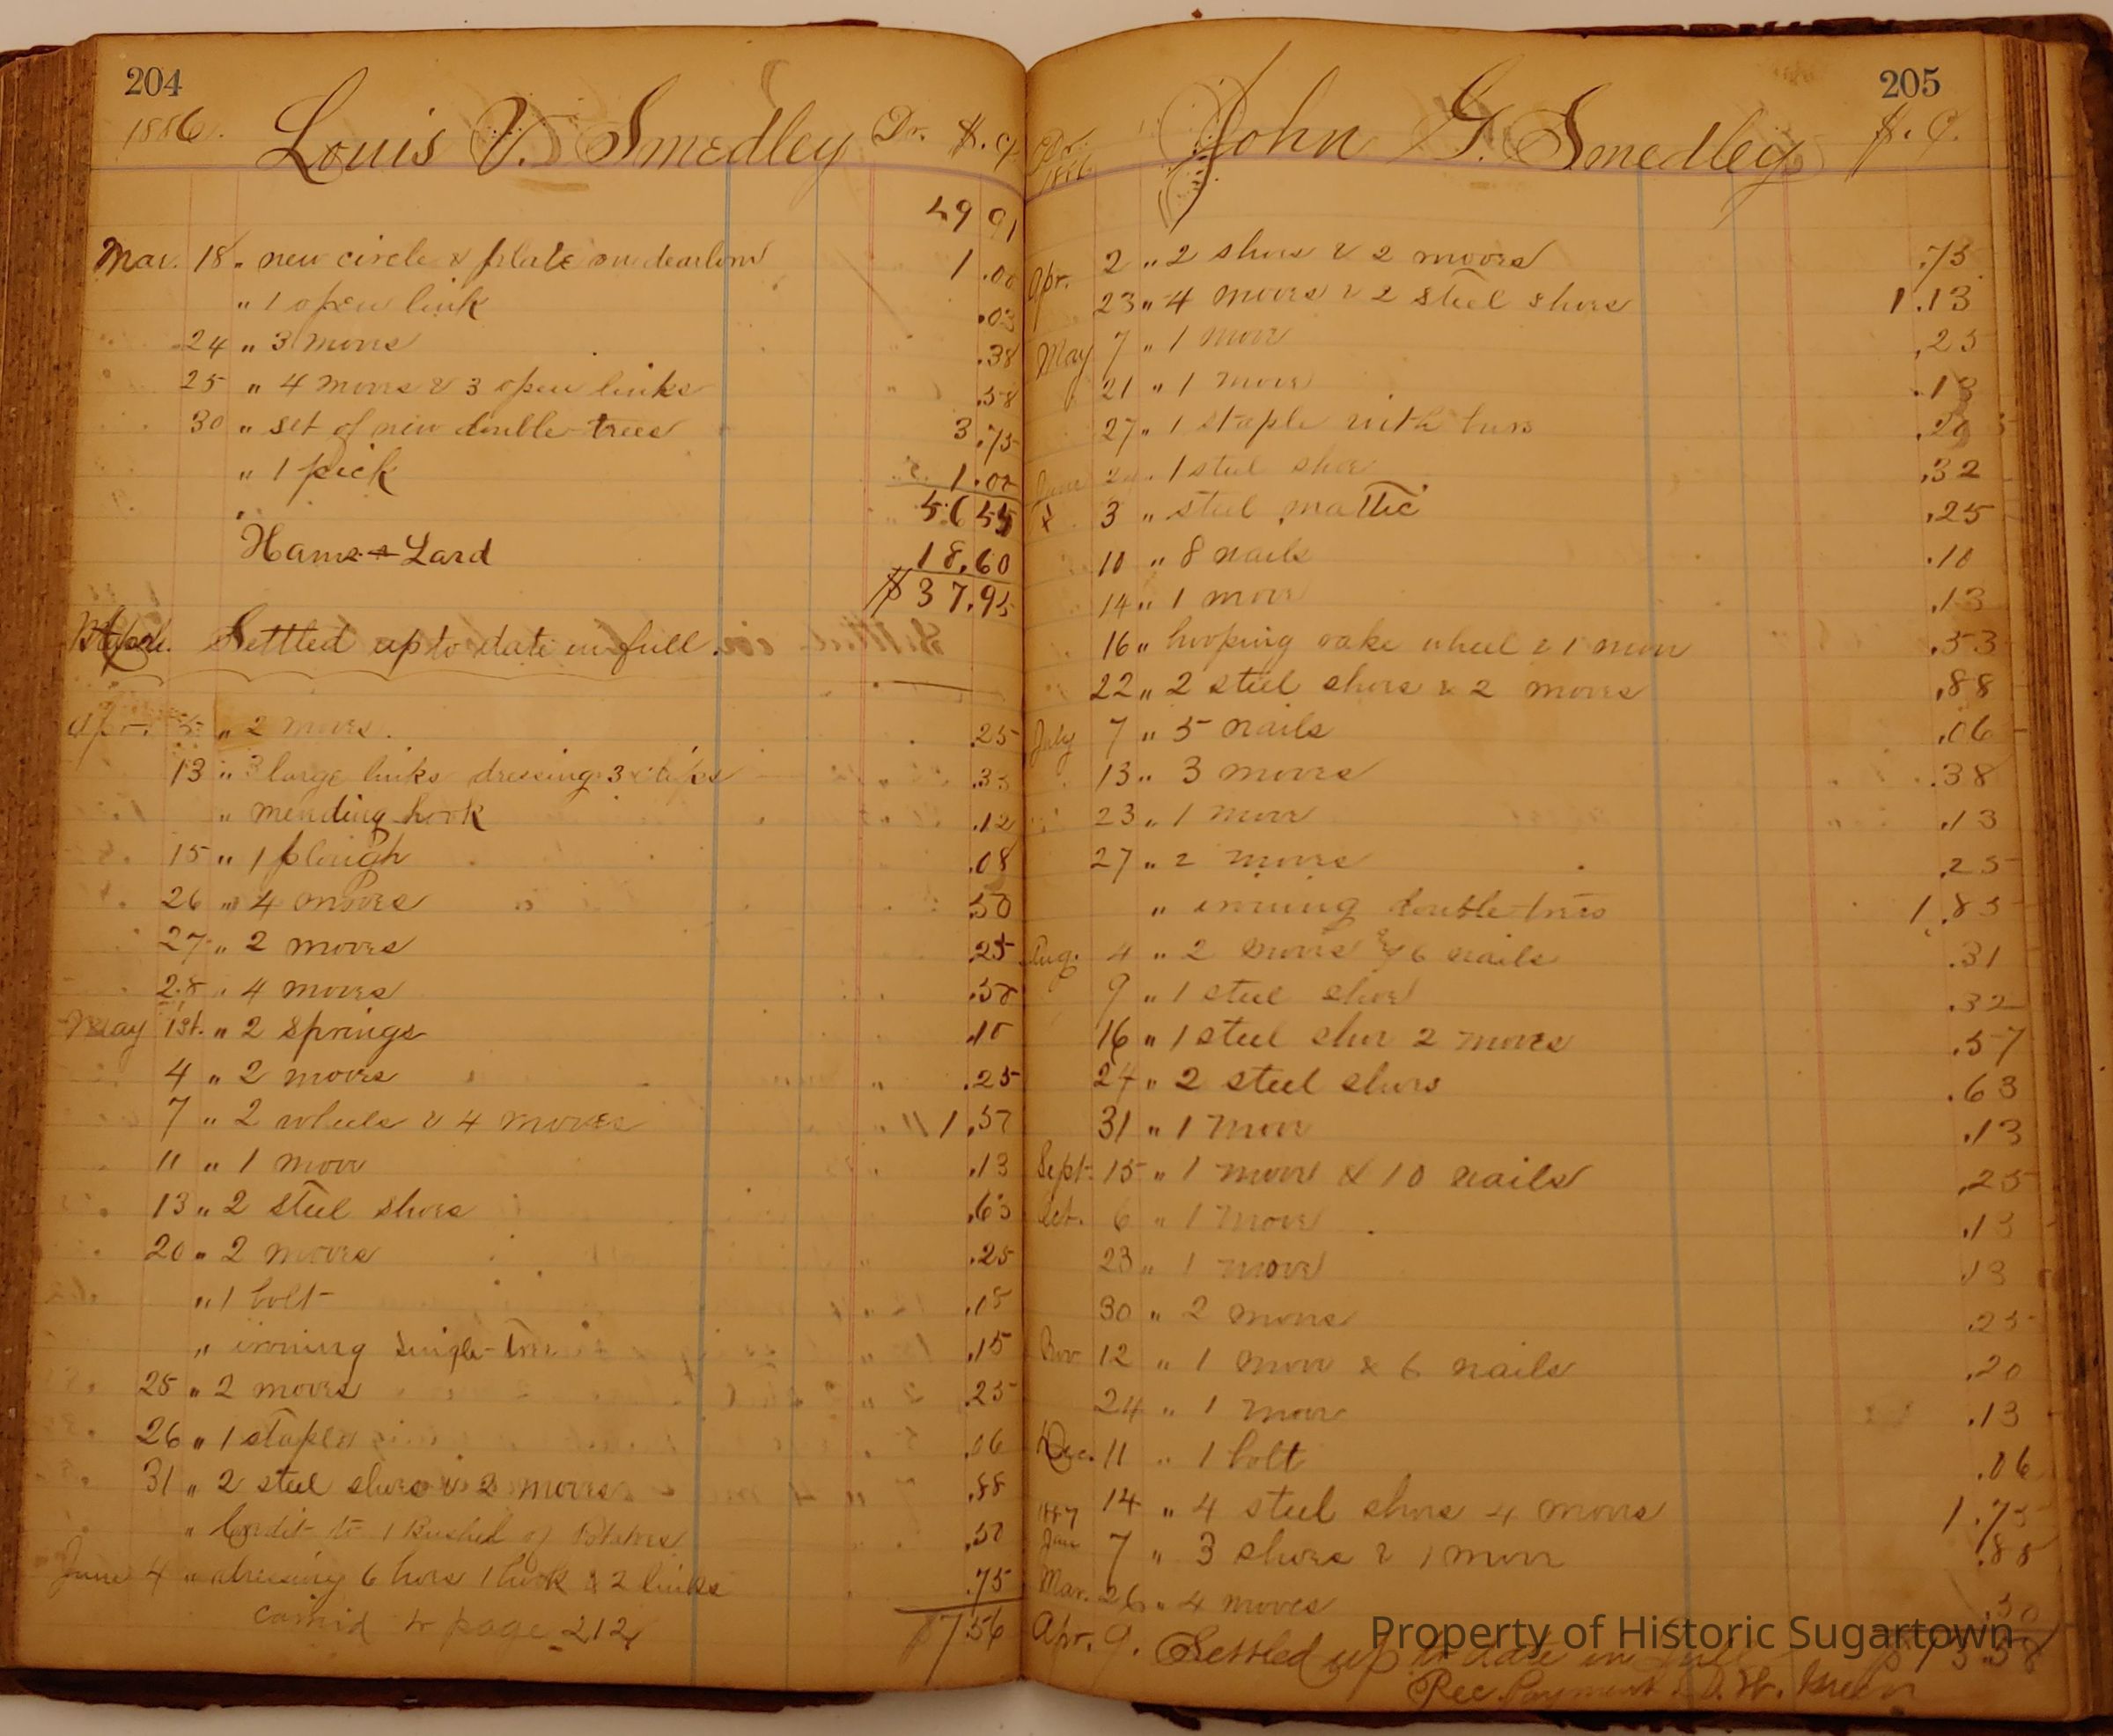 204
1886. Louis V. Smedley Dr. $. c.
49 91
Mar. 18 „ new circle & plate on dearborn 1.00
„ 1 open link .03
24 „ 3 moves .38
25 „ 4 moves & 3 open links .58
30 „ set of new double-trees 3.75
„ 1 pick 1.00
56 55
Hams & Lard 18.60
$37.95
Settled up to date in full.
Apr. „ 2 moves. .25
13 „ 3 large links dressing 3 .33
„ mending hook .12
15 „ 1 plough .08
26 „ 4 moves .50
27 „ 2 moves .25
28 „ 4 moves .50
May 1st. „ 2 springs .10
4 „ 2 moves .25
7 „ 2 wheels & 4 moves 1.50
11 „ 1 move .13
13 „ 2 steel shoes .63
20 „ 2 moves .25
„ 1 bolt .15
„ ironing single-tree .15
25 „ 2 moves .25
26 „ 1 staple .06
31 „ 2 steel shoes & 2 moves .88
„ Credit to 1 Bushel of Potatoes .50
June 4 „ dressing 6 hoes 1 hook & 2 links .75
carried to page 212 $7 56
205
Dr. 1886. John G. Smedley $. c.
Apr. 2 „ 2 shoes & 2 moves .75
23 „ 4 moves & 2 steel shoes 1.13
May 7 „ 1 move .25
21 „ 1 move .13
27 „ 1 staple with
June „ 1 steel shoe .32
3 „ steel mattic .25
10 „ 8 nails .10
14 „ 1 move .13
16 „ hooping rake wheel & 1 move .53
22 „ 2 steel shoes & 2 moves .88
July 7 „ 5 nails .06
13 „ 3 moves .38
23 „ 1 move .13
27 „ 2 moves .25
„ ironing double-trees 1.85
Aug. 4 „ 2 moves & 6 nails .31
9 „ 1 steel shoe .32
16 „ 1 steel shoe 2 moves .57
24 „ 2 steel shoes .63
31 „ 1 move .13
Sept. 15 „ 1 move & 10 nails .25
Oct. 6 „ 1 move .13
23 „ 1 move .13
30 „ 2 moves .25
Nov 12 „ 1 move & 6 nails .20
24 „ 1 move .13
Dec. 11 „ 1 bolt .06
14 „ 4 steel shoes 4 moves 1.75
1887
Jan 7 „ 3 shoes & 1 move .88
Mar. 26 „ 4 moves .50
Apr. 9. Settled up to date in full
Rec. Payment D. H. Green
Property of Historic Sugartown